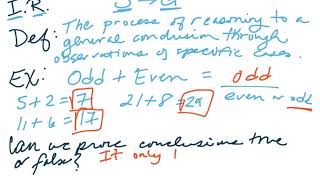 I.R. S → G
Def: The process of reasoning to a
general conclusion through
observations of specific cases.
EX: Odd + Even = odd
even or odd
5+2=7 21+8=29
11+6=17
Can we prove conclusions true
or false? It only 1